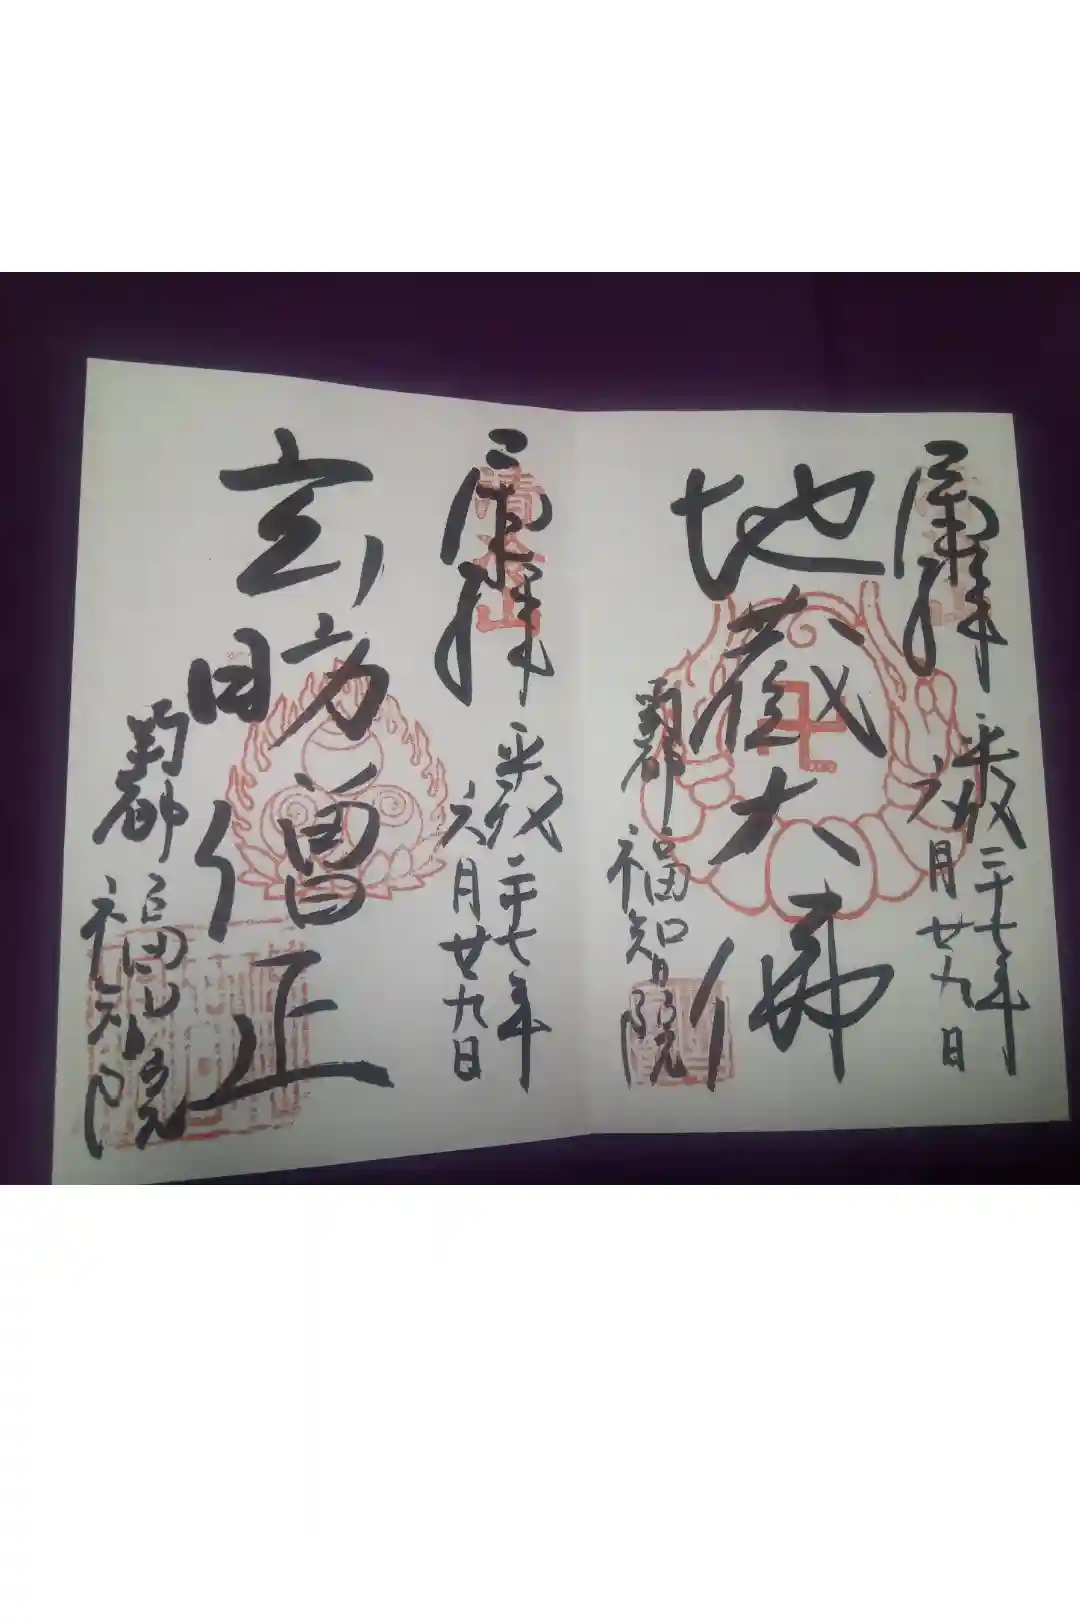 奉拝
平成二十七年
六月廿九日
地蔵大佛
南都
福智院
奉拝
清水山
平成二十七年
六月廿九日
玄昉僧正
南都
福智院